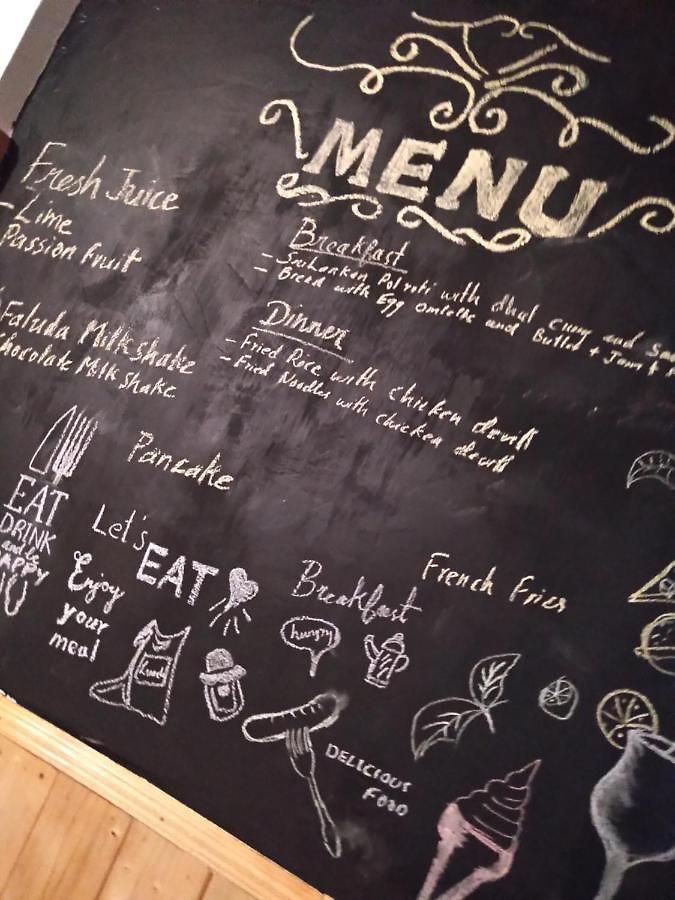 MENU
Fresh Juice
- Lime
Passion Fruit
Faluda Milkshake
Chocolate Milk Shake
Breakfast
- SriLankan Pol roti with dhal Curry and
- Bread with Egg Omlette and Butter + Jam +
Dinner
- Fried Rice with chicken devill
- Fried Noodles with chicken devill
Pancake
EAT
DRINK
and be
HAPPY
Let's
EAT
Enjoy
your
meal
Lunch
Breakfast
hungry
French Fries
DELICIOUS
FOOD